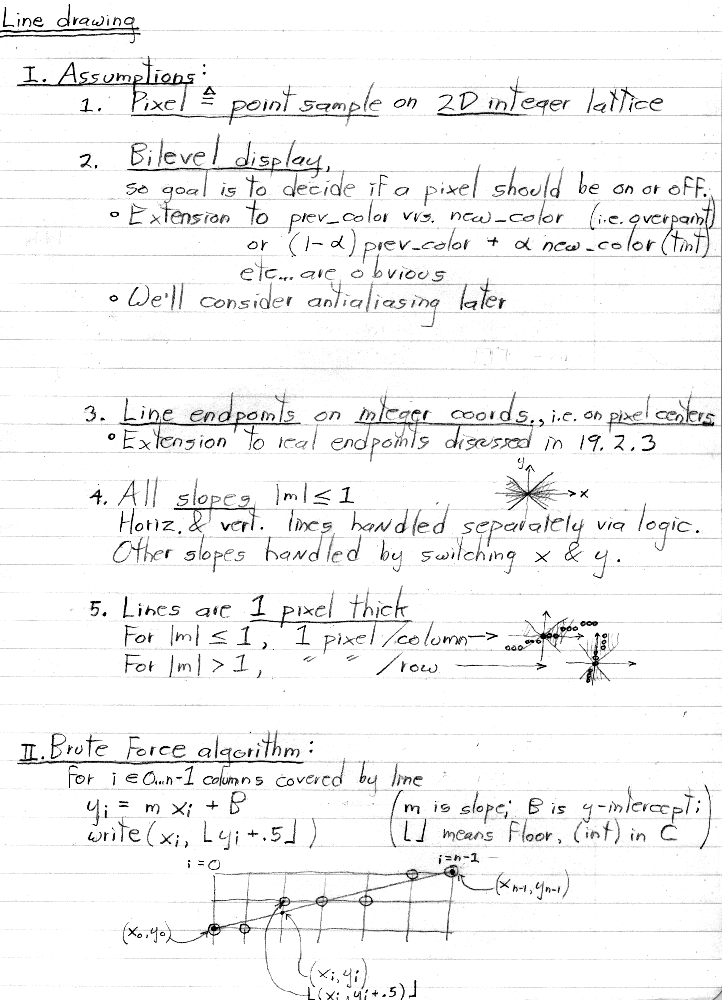 Line drawing
I. Assumptions:
1. Pixel ≙ point sample on 2D integer lattice
2. Bilevel display,
so goal is to decide if a pixel should be on or off.
∘ Extension to prev_color vrs. new_color (i.e. overpaint)
or (1-α) prev_color + α new_color (tint)
etc... are obvious
∘ We'll consider antialiasing later
3. Line endpoints on integer coords., i.e. on pixel centers
∘ Extension to real endpoints discussed in 19.2.3
y
4. All slopes |m| ≤ 1
x
Horiz. & vert. lines handled separately via logic.
Other slopes handled by switching x & y.
5. Lines are 1 pixel thick
For |m| ≤ 1, 1 pixel/column→
For |m| > 1, " " /row →
II. Brute Force algorithm:
For i ∈ 0...n-1 columns covered by line
yi = m xi + B (m is slope; B is y-intercept;
write(xi, ⌊yi+.5⌋) ⌊⌋ means Floor, (int) in C)
i=0 i=n-1
(xn-1, yn-1)
(x0, y0)
(xi, yi)
⌊(xi, yi+.5)⌋